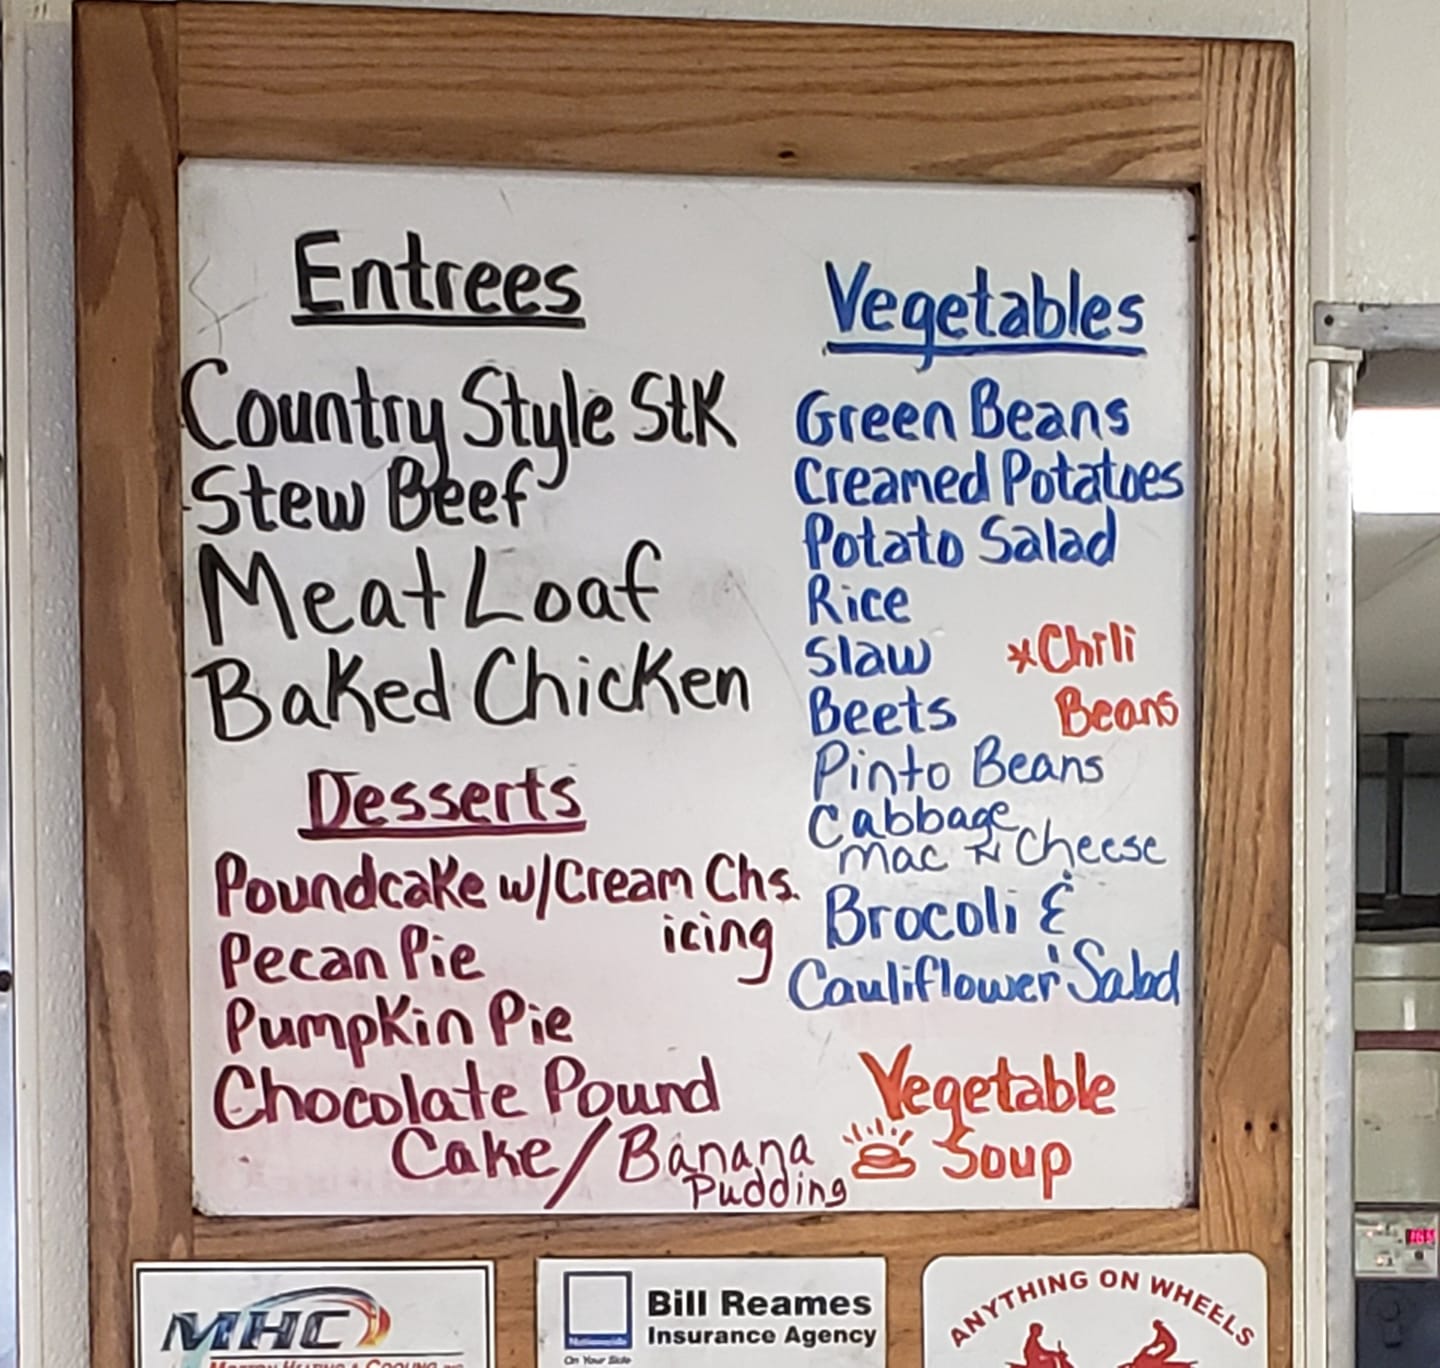 Entrees
Country Style Stk
Stew Beef
Meat Loaf
Baked Chicken
Desserts
Poundcake w/Cream Chs.
icing
Pecan Pie
Pumpkin Pie
Chocolate Pound
Cake/Banana
Pudding
Vegetables
Green Beans
Creamed Potatoes
Potato Salad
Rice
Slaw
Beets
*Chili
Beans
Pinto Beans
Cabbage
mac N Cheese
Brocoli &
Cauliflower Salad
Vegetable
Soup
MHC
Bill Reames
Insurance Agency
Nationwide
On Your Side
ANYTHING ON WHEELS